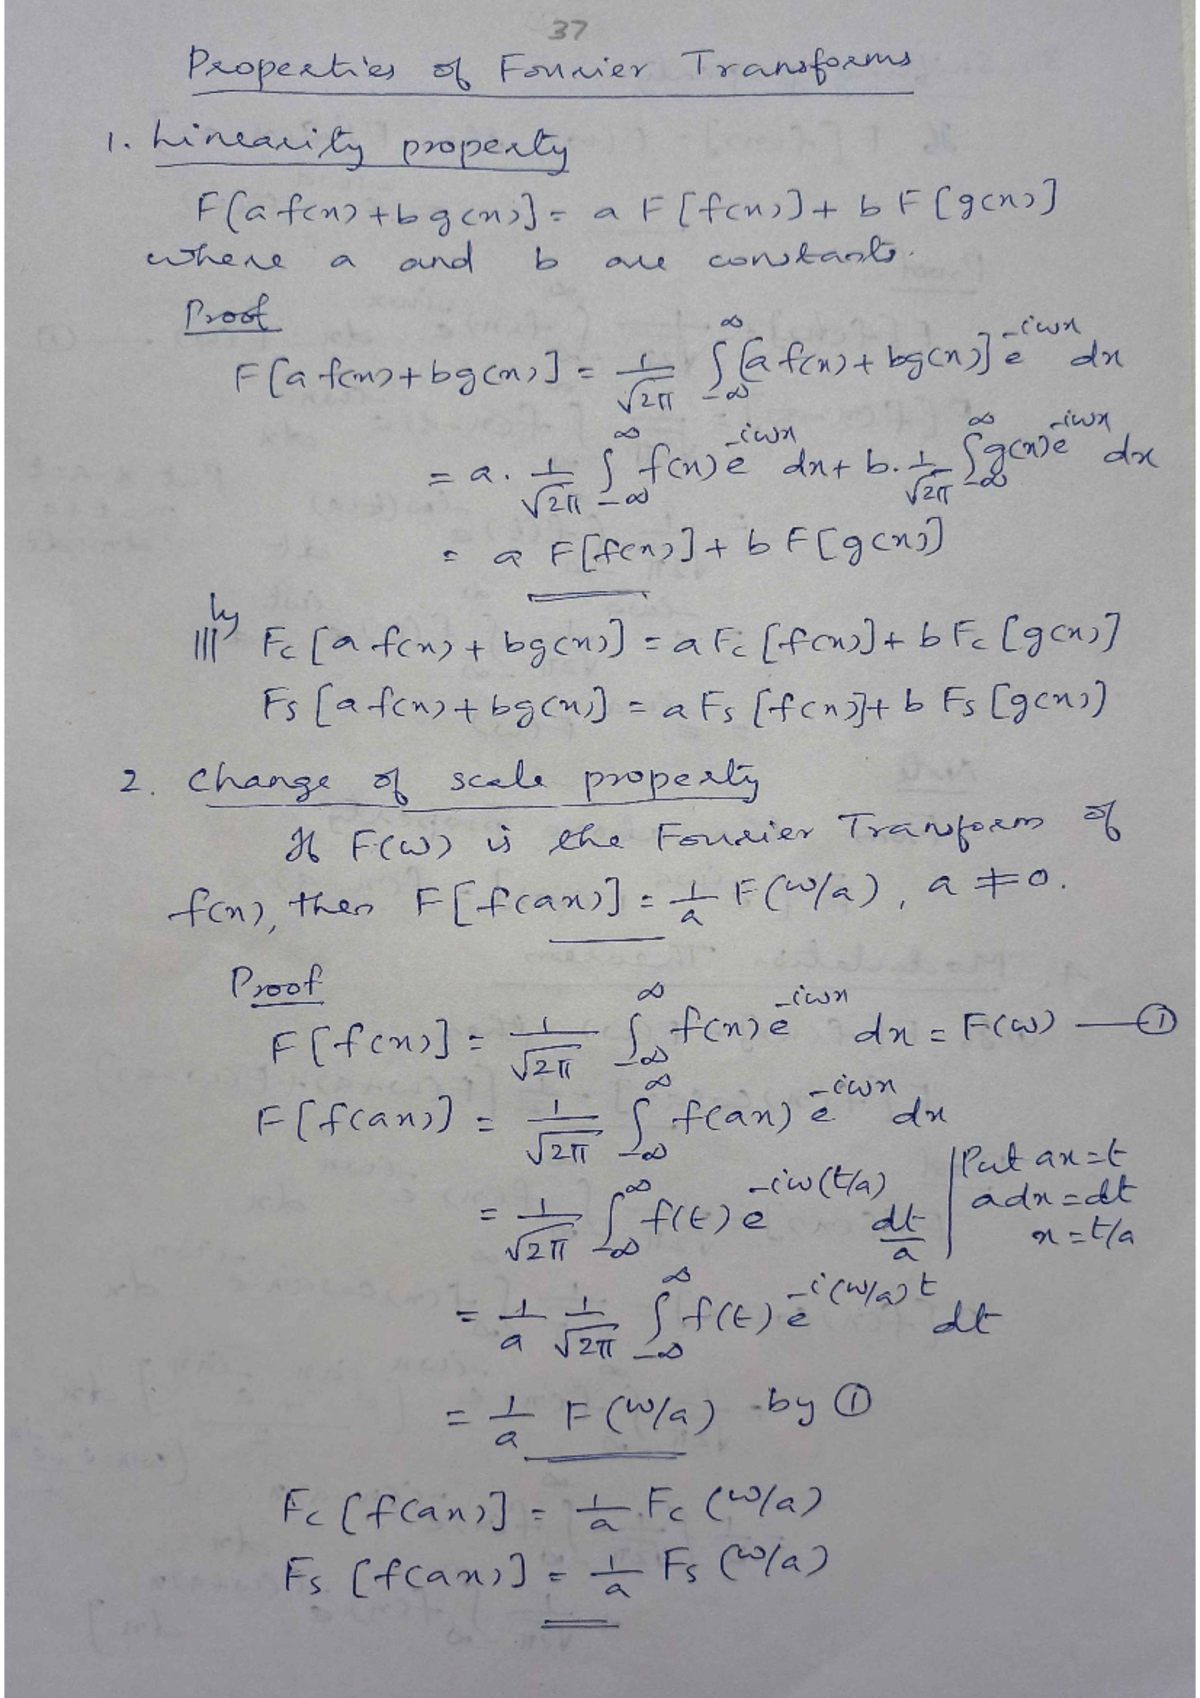 37
Properties of Fourier Transforms
1. Linearity property
F[a f(x) + b g(x)] = a F[f(x)] + b F[g(x)]
where a and b are constants.
Proof
F[a f(x) + b g(x)] = 1/√2π ∫_{-∞}^{∞} [a f(x) + b g(x)] e^{-iωx} dx
= a. 1/√2π ∫_{-∞}^{∞} f(x) e^{-iωx} dx + b. 1/√2π ∫_{-∞}^{∞} g(x) e^{-iωx} dx
= a F[f(x)] + b F[g(x)]
|||ly Fc [a f(x) + b g(x)] = a Fc [f(x)] + b Fc [g(x)]
Fs [a f(x) + b g(x)] = a Fs [f(x)] + b Fs [g(x)]
2. Change of scale property
If F(ω) is the Fourier Transform of
f(x), then F[f(ax)] = 1/a F(ω/a), a ≠ 0.
Proof
F[f(x)] = 1/√2π ∫_{-∞}^{∞} f(x) e^{-iωx} dx = F(ω) — ①
F[f(ax)] = 1/√2π ∫_{-∞}^{∞} f(ax) e^{-iωx} dx
= 1/√2π ∫_{-∞}^{∞} f(t) e^{-iω(t/a)} dt/a
Put ax = t
adx = dt
x = t/a
= 1/a 1/√2π ∫_{-∞}^{∞} f(t) e^{-i(ω/a)t} dt
= 1/a F(ω/a) by ①
Fc [f(ax)] = 1/a Fc (ω/a)
Fs [f(ax)] = 1/a Fs (ω/a)